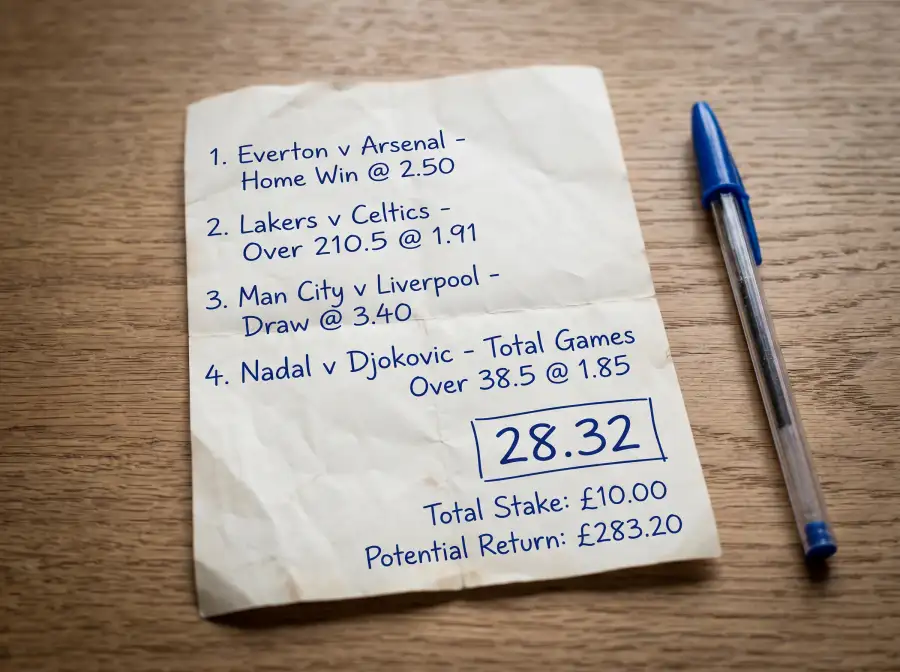 1. Everton v Arsenal -
Home Win @ 2.50
2. Lakers v Celtics -
Over 210.5 @ 1.91
3. Man City v Liverpool -
Draw @ 3.40
4. Nadal v Djokovic - Total Games
Over 38.5 @ 1.85
28.32
Total Stake: £10.00
Potential Return: £283.20